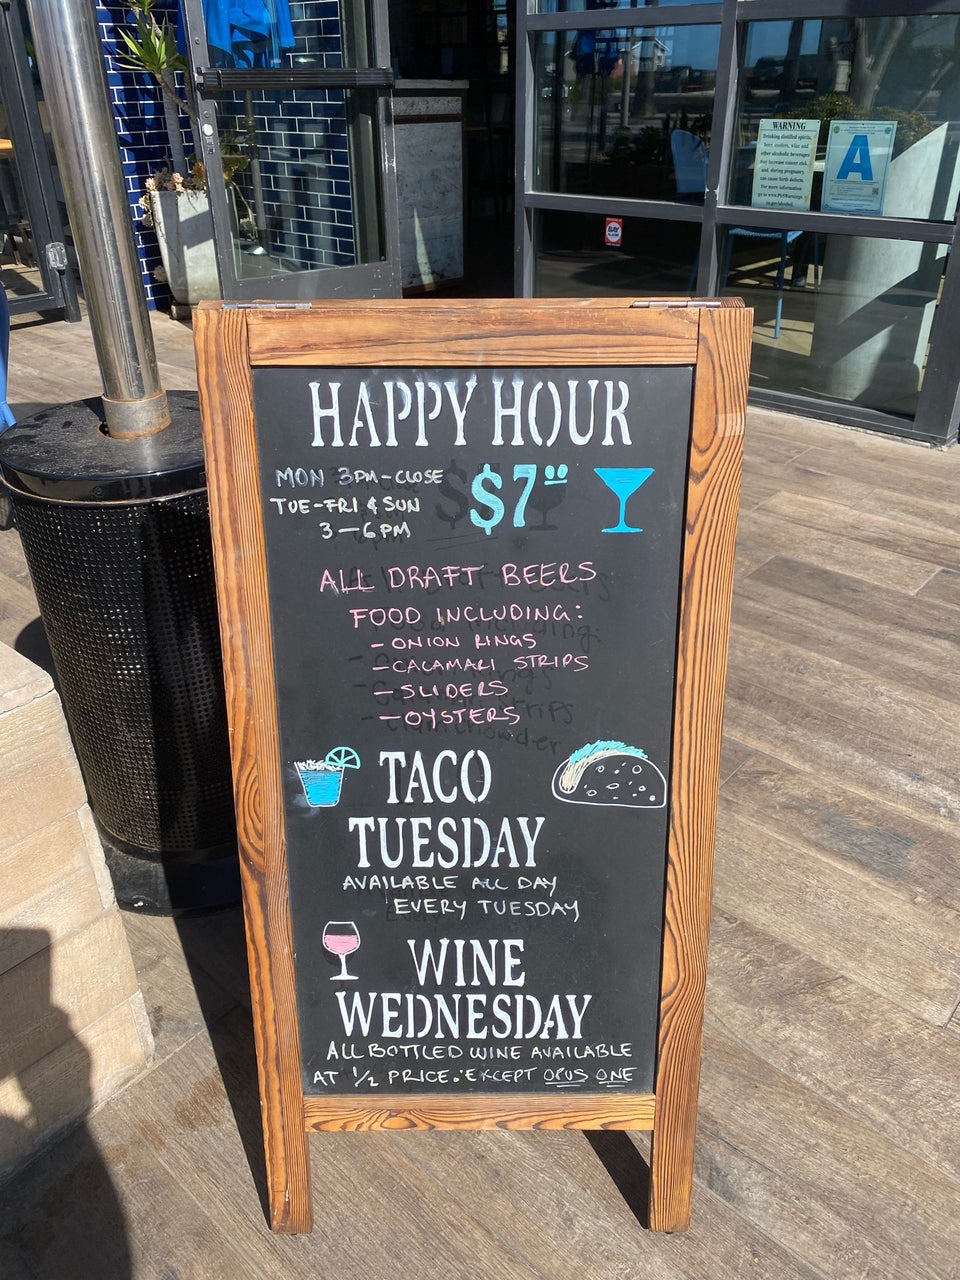 WARNING
Drinking distilled spirits,
beer, coolers, wine and
other alcoholic beverages
may increase cancer risk,
and, during pregnancy,
can cause birth defects.
For more information
go to www.P65Warnings.
ca.gov/alcohol.
A
HAPPY HOUR
MON 3PM-CLOSE
TUE-FRI & SUN
3-6PM
$7.00
ALL DRAFT BEERS
FOOD INCLUDING:
- ONION RINGS
- CALAMARI STRIPS
- SLIDERS
- OYSTERS
TACO
TUESDAY
AVAILABLE ALL DAY
EVERY TUESDAY
WINE
WEDNESDAY
ALL BOTTLED WINE AVAILABLE
AT 1/2 PRICE. EXCEPT OPUS ONE